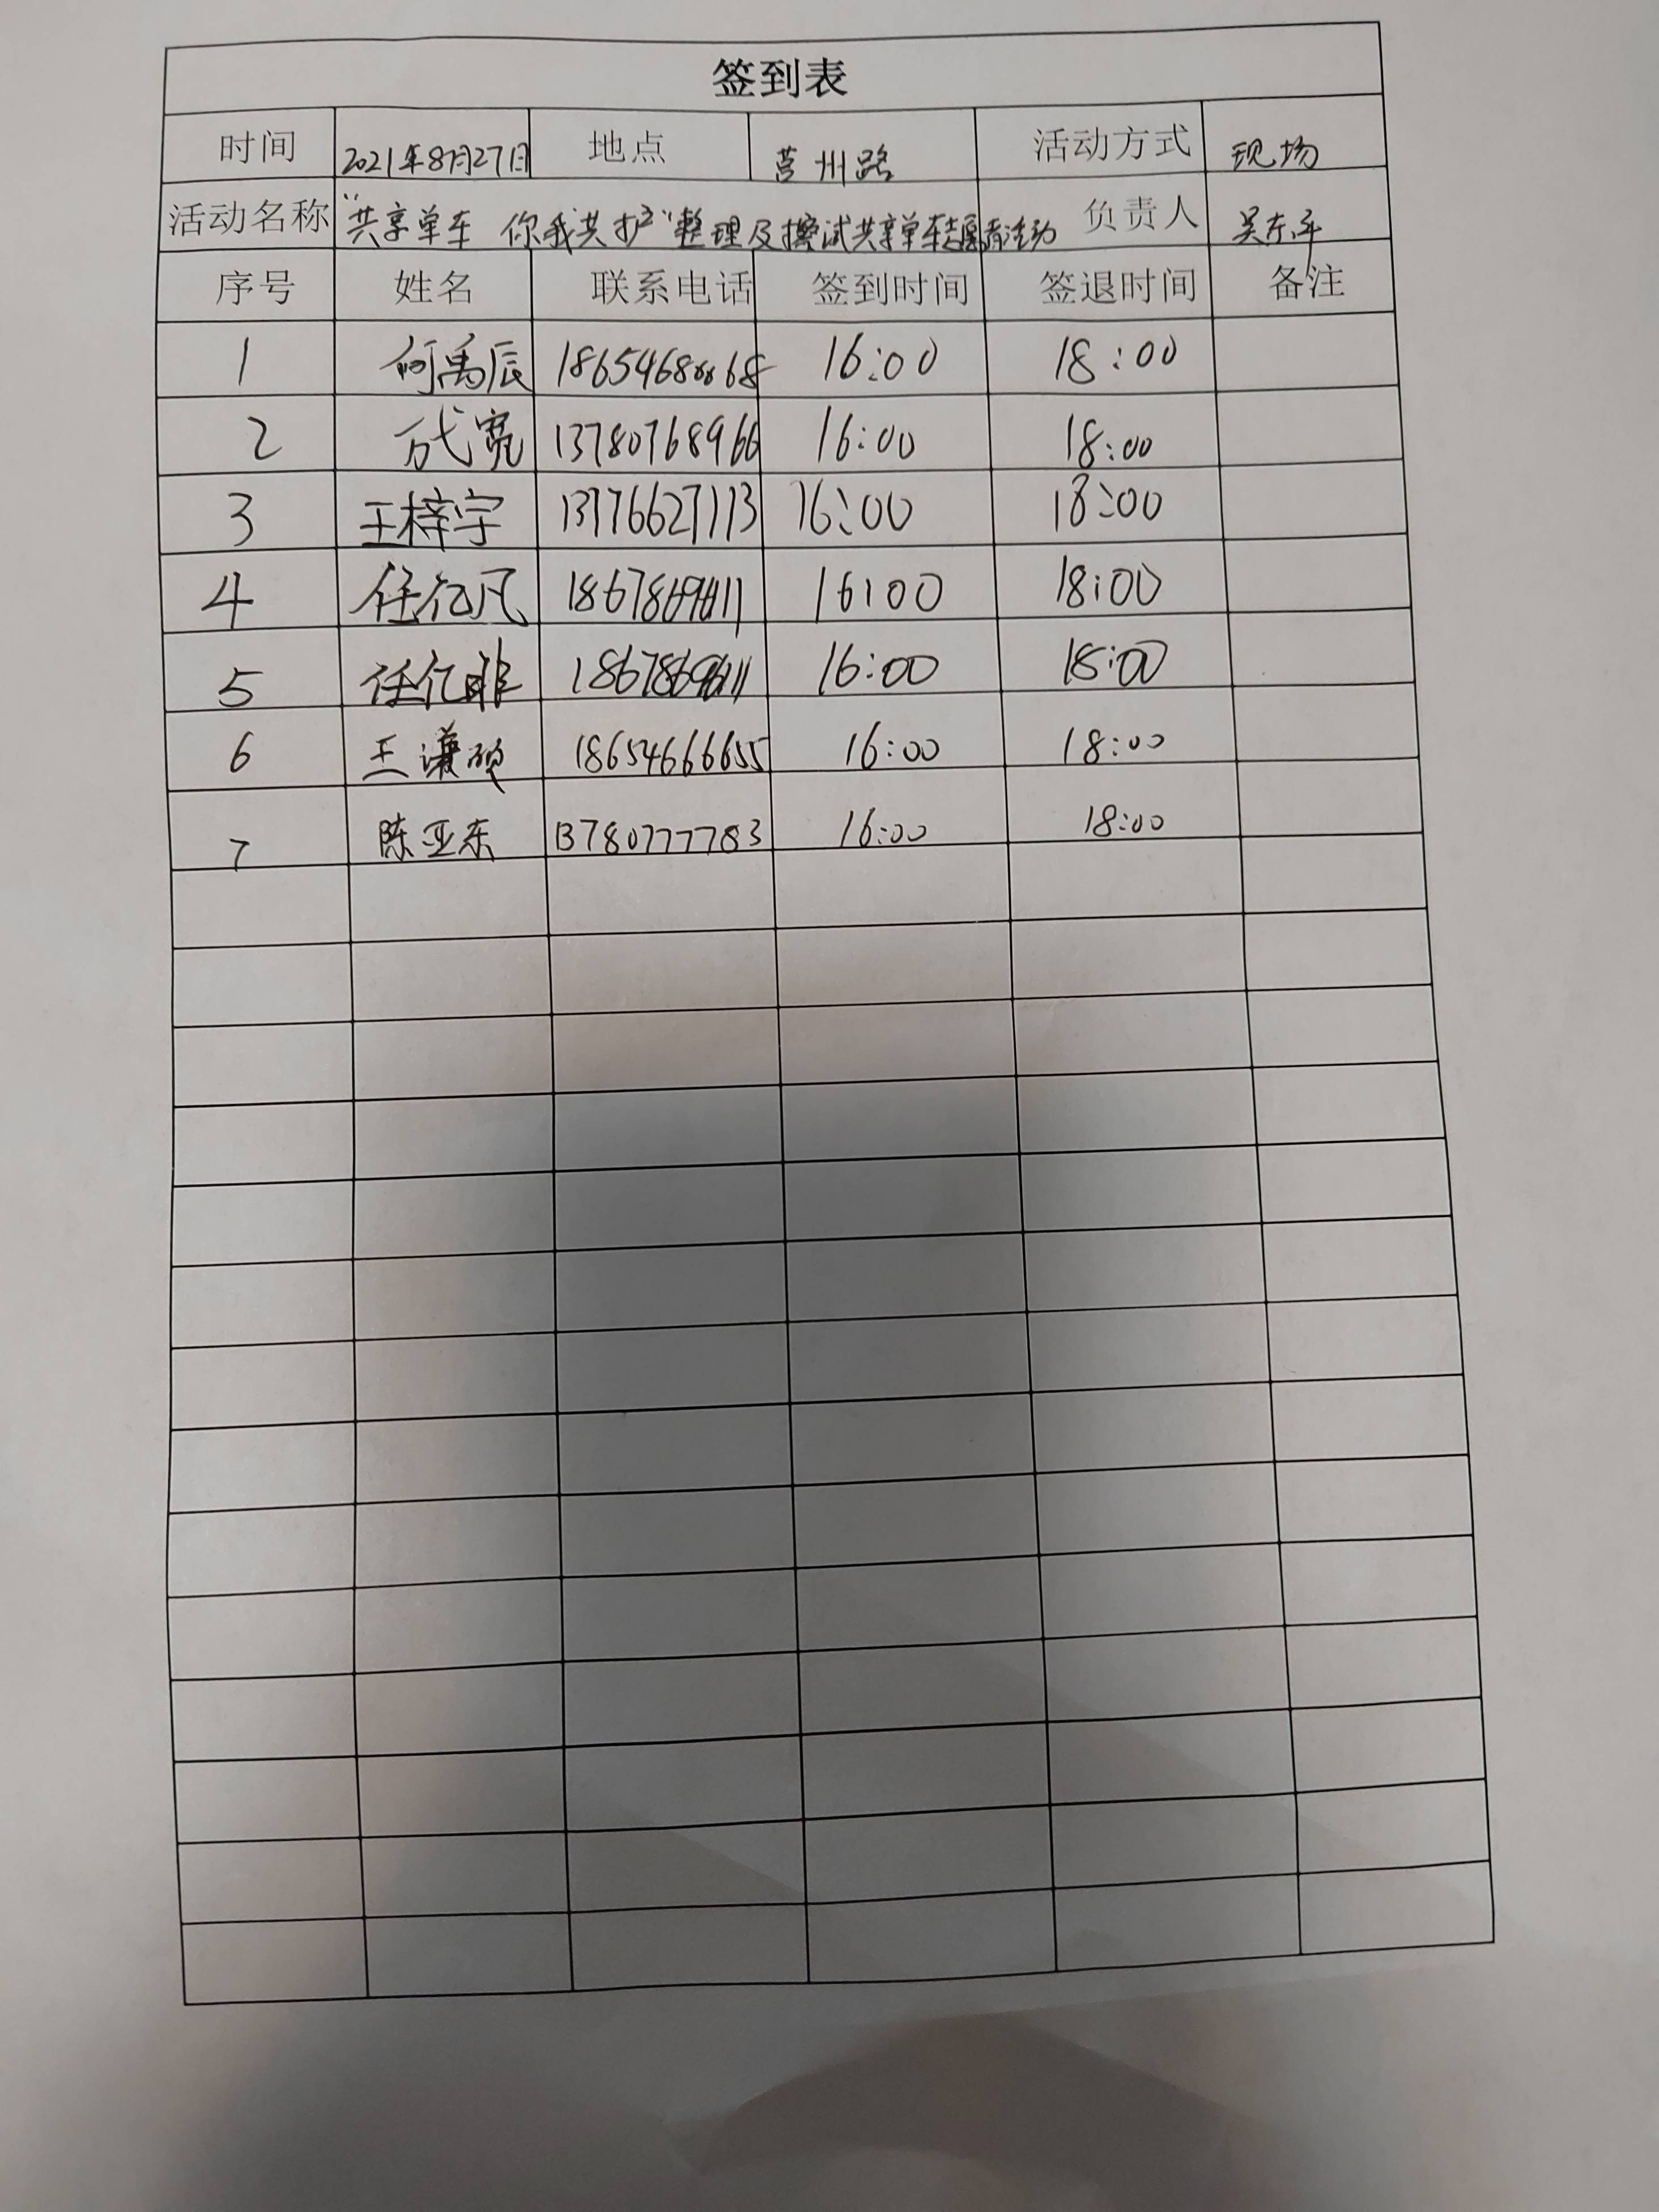 签到表
时间 2021年8月27日 地点 莒州路 活动方式 现场
活动名称 "共享单车 你我共护"整理及擦试共享单车志愿者活动 负责人
序号 姓名 联系电话 签到时间 签退时间 备注
1 何禹辰 16:00 18:00
2 13780768966 16:00 18:00
3 王梓宇 13776627113 16:00 18:00
4 任亿凡 16:00 18:00
5 任亿非 16:00 18:00
6 王谦硕 18654666655 16:00 18:00
7 陈亚东 13780777783 16:00 18:00